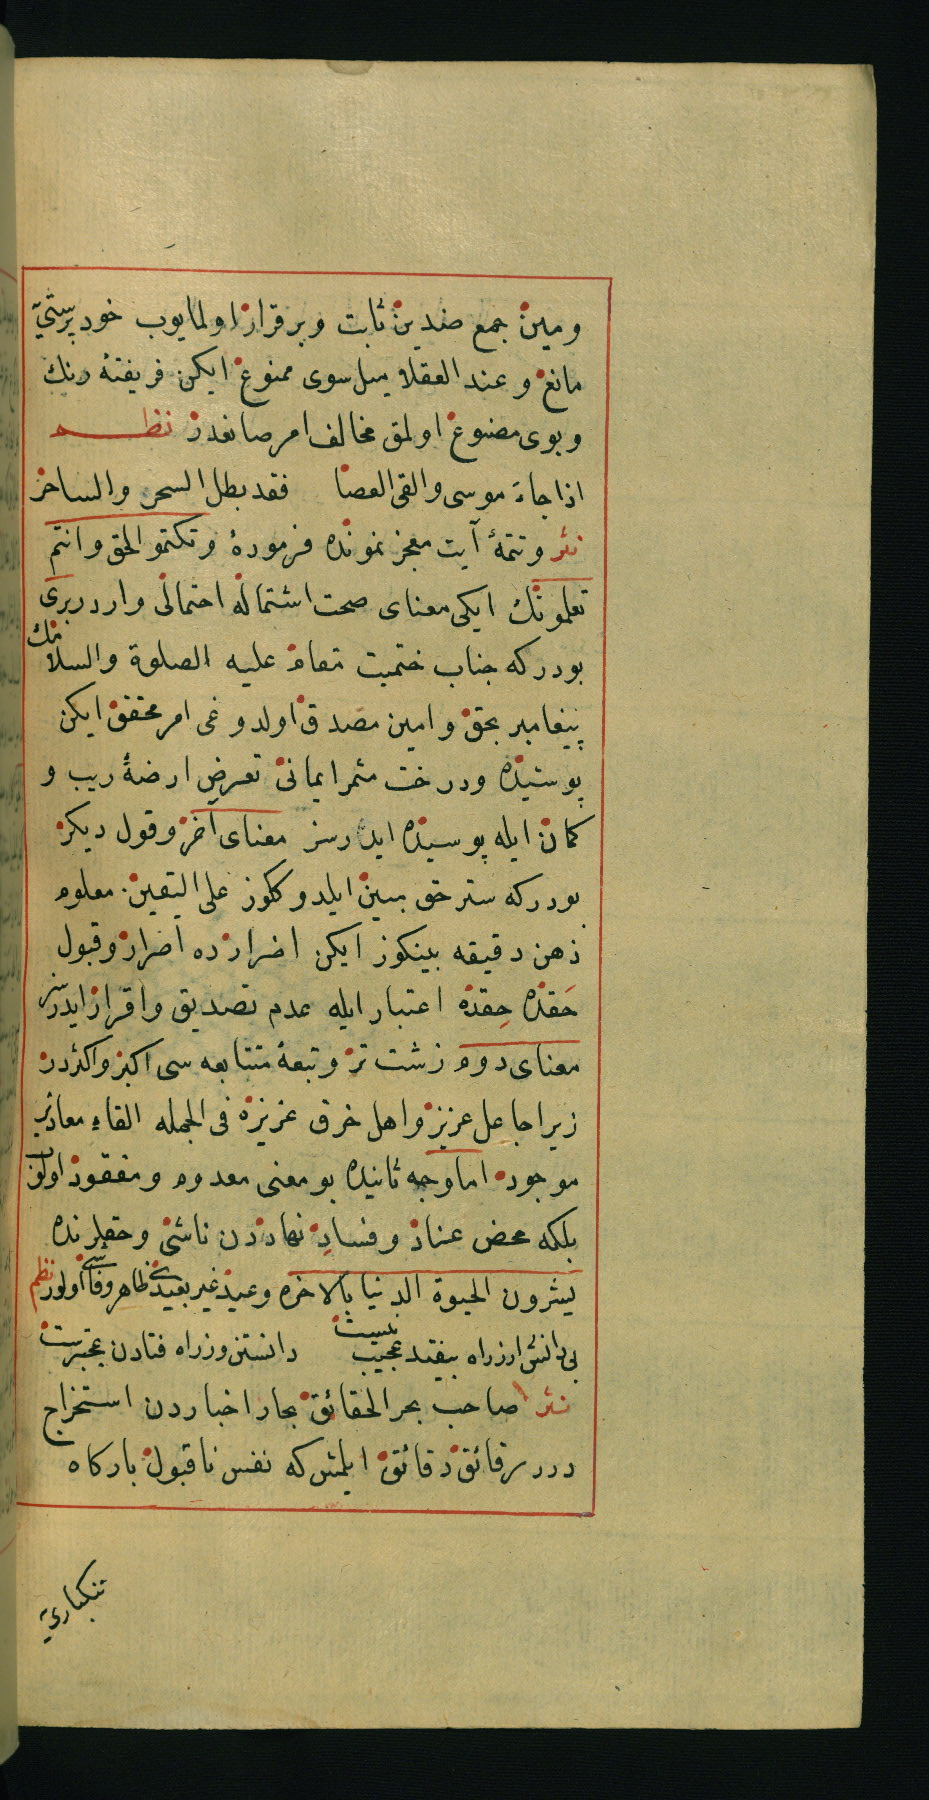 ومبین جمع ضدین ثابت وبرقرار اولمایوب خود پرستی
مانع وعند العقلا میل سوی ممنوع ایکن فریفتهٔ رنك
وبوی مصنوع اولمق مخالف امر صانعدر نظم
اذا جاء موسی والقی العصا فقد بطل السحر والساحر
نثر وتتمهٔ آیت معجز نمونده فرمودهٔ وتکتموا الحق وانتم
تعلمونك ایکی معنای صحت اشتماله احتمالی واردر بری
بودرکه جناب ختمیت مقام علیه الصلوة والسلامك
پیغامبر بحق وامین مصدق اولدوغی امر محقق ایکن
پوستیده ودرخت مثمر ایمانی تعرض ارضهٔ ریب و
کمان ایله پوسیده ایدرسز معنای آخر وقول دیکر
بودرکه ستر حق مبین ایلدوککوز علی الیقین معلوم
ذهن دقیقه بینکوز ایکن اضرارده اصرار وقبول
حَقده حِقده اعتبار ایله عدم تصدیق واقرار ایدرسز
معنای دوم زشت تر وتبعهٔ متتابعه سی اکبر واکثردر
زیرا جاعل عزیز واهل خرق غریزه فی الجمله القاء معاذیر
موجود اما وجه ثانیده بو معنی معدوم ومفقود اولوب
بلکه محض عناد وفساد نهاددن ناشی وحقلرنده
یشرون الحیوة الدنیا بالاخره وعید غیر بعیدی ظاهر وفاشی اولور نظم
بی دانش ار زراه بیفتد عجیب نیست دانستن وزراه فتادن عجبترست
نثر صاحب بحر الحقائق بحار اخباردن استخراج
درر رقائق دقائق ایلمش که نفس ناقبول بارکاه